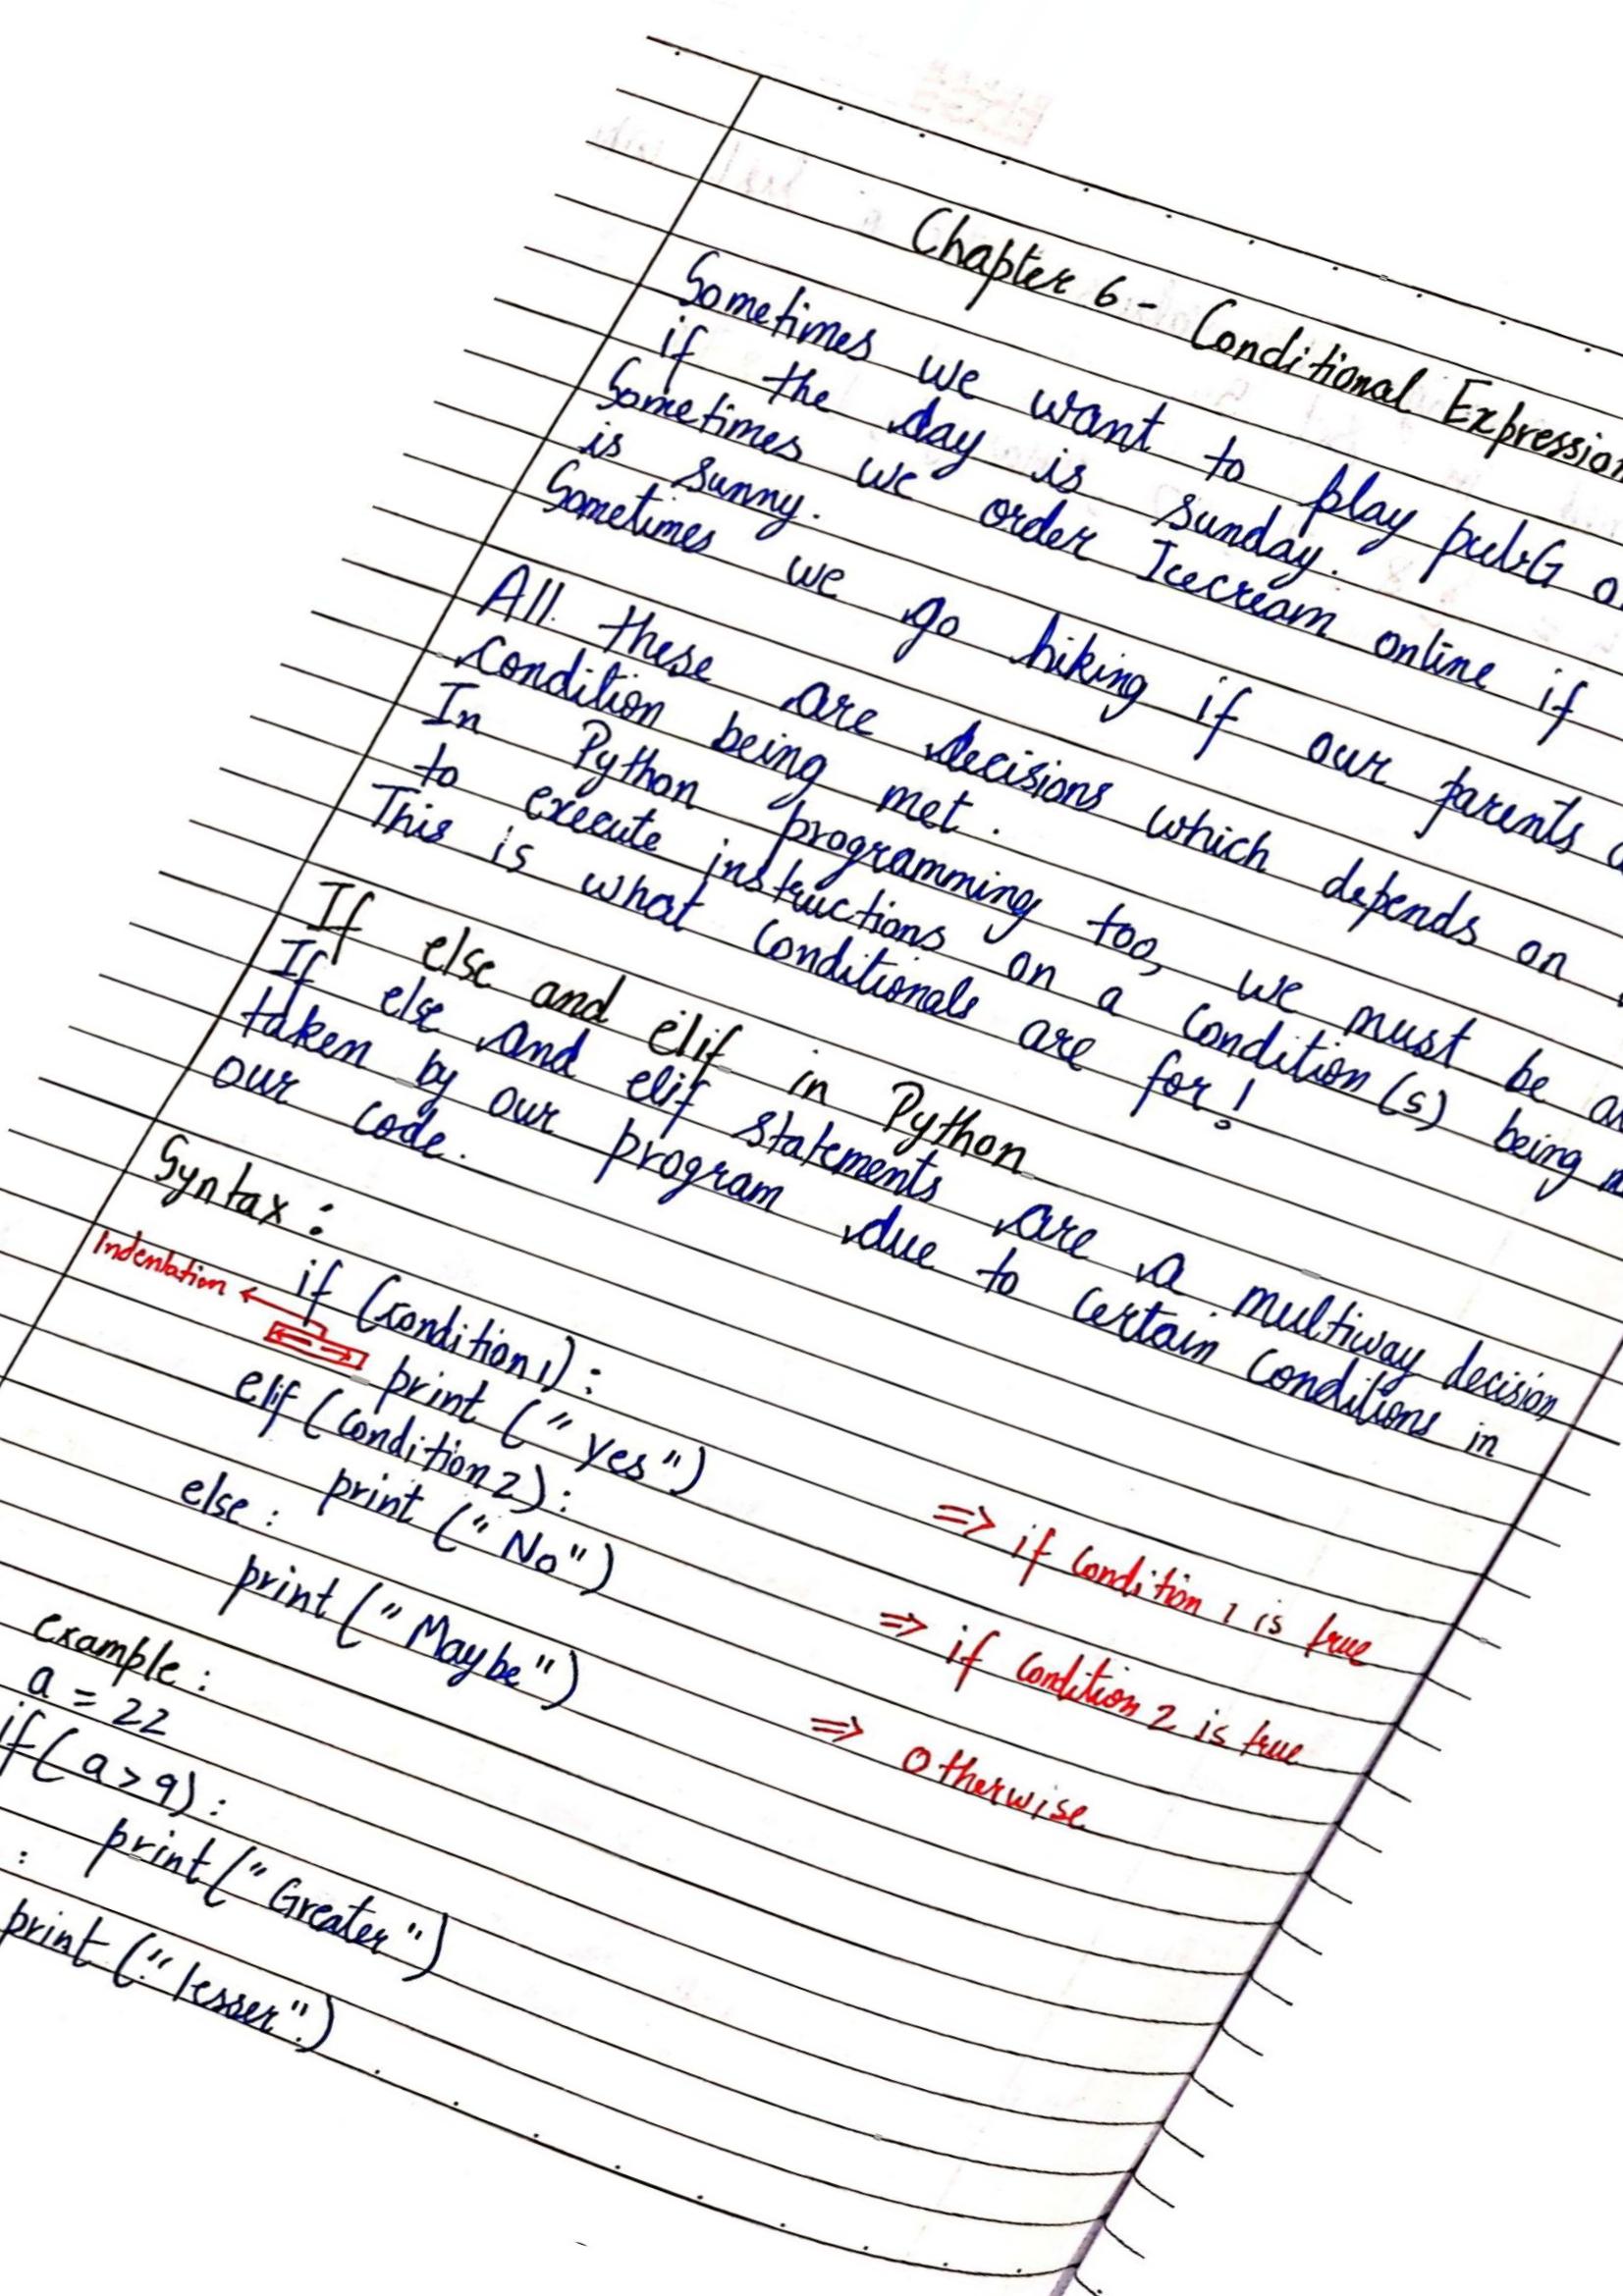 Chapter 6 - Conditional Expression
Sometimes we want to play pubG
if the day is sunday.
Sometimes we order Icecream online if
is sunny.
Sometimes we go hiking if our parents
All these are decisions which depends on
Condition being met.
In Python programming too, we must be
to execute instructions on a condition(s) being
This is what conditionals are for!
If else and elif in Python
If else and elif statements are a multiway decision
taken by our program due to certain conditions in
our code.
Syntax:
if (condition1):
Indentation
print ("yes") => if condition 1 is true
elif (condition 2):
print ("No") => if condition 2 is true
else:
print ("Maybe") => Otherwise
example:
a = 22
if (a>9):
print ("Greater")
:
print ("lesser")